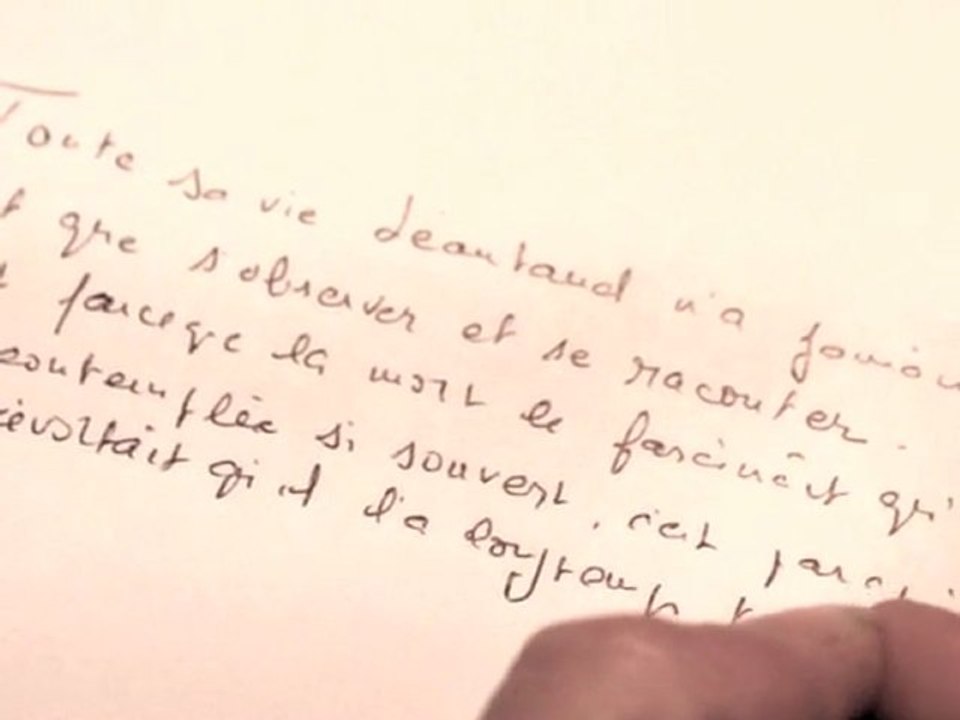 Toute sa vie Léautaud n'a jamais
que s'observer et se raconter.
parce que la mort le fascinait qu'
contemplée si souvent, c'est parce
révoltait qu'il l'a longtemps